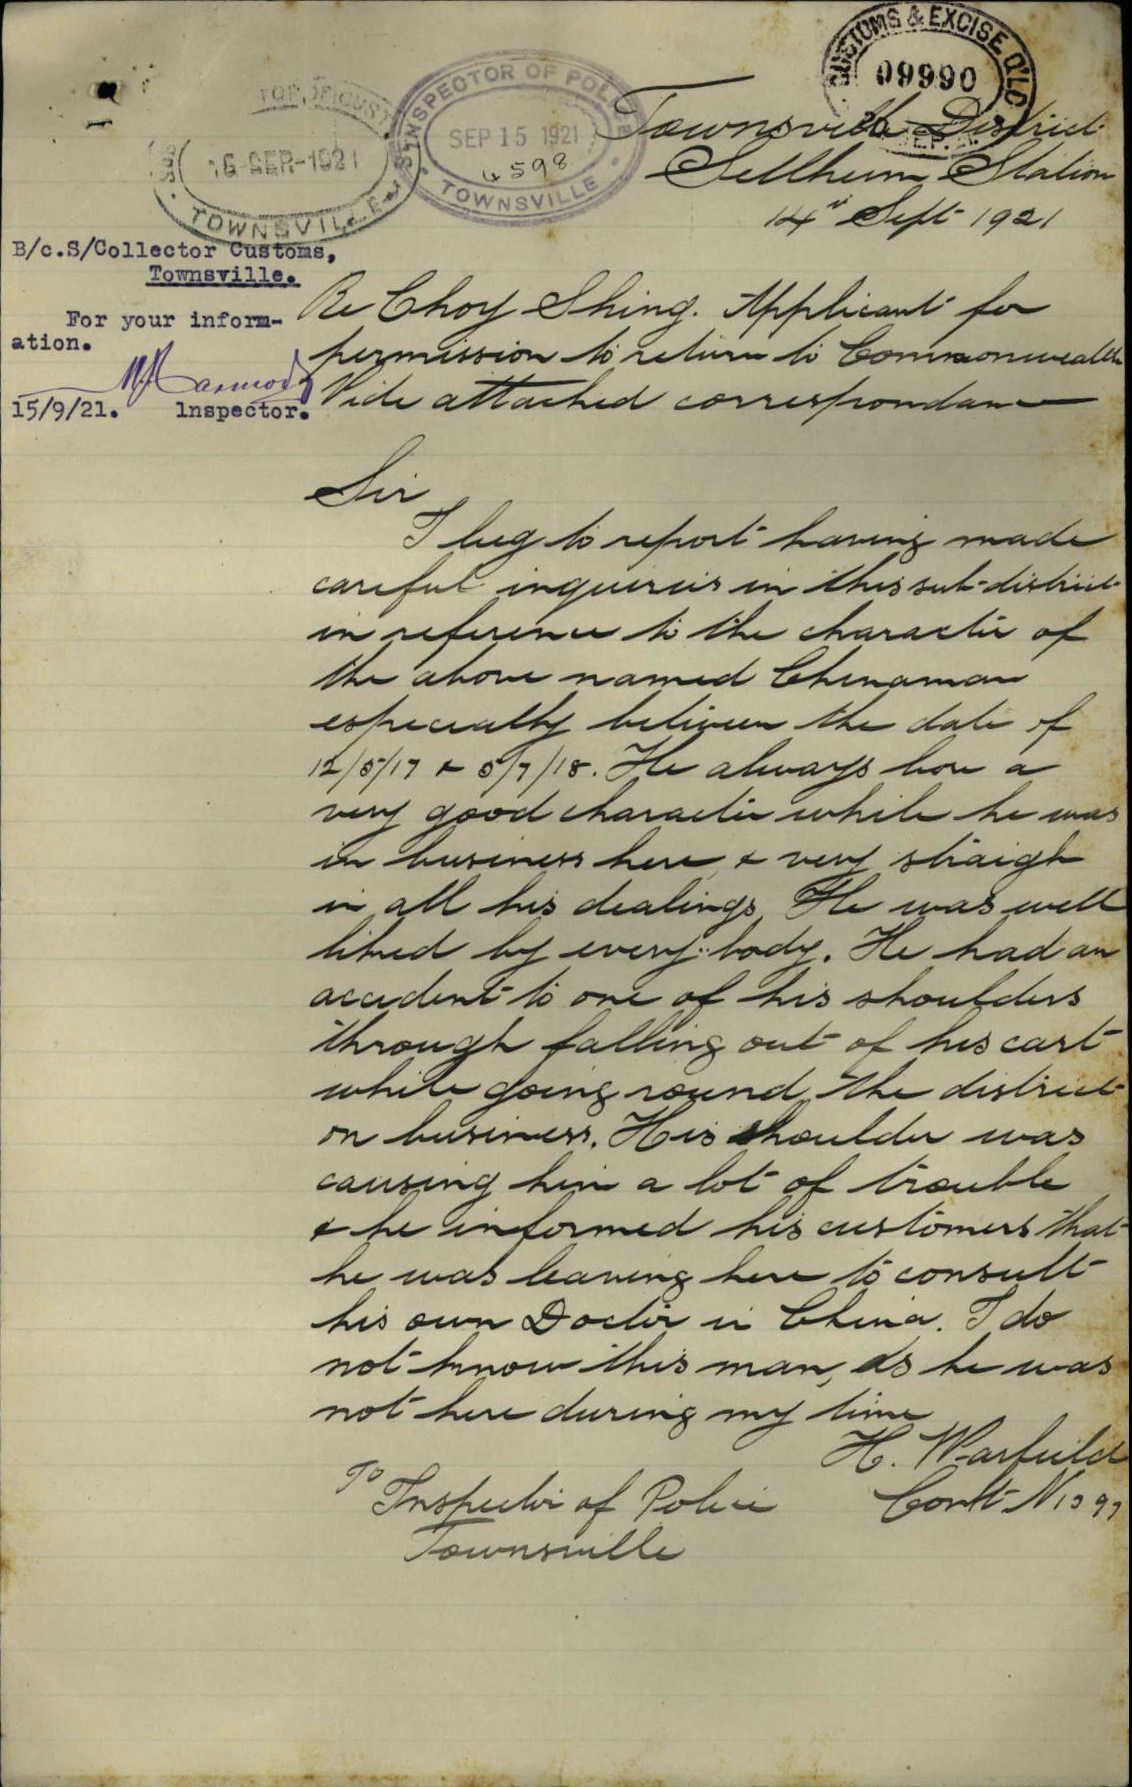 CUSTOMS & EXCISE Q'LD
09990
SEP.
INSPECTOR OF POLICE
SEP 15 1921
4598
TOWNSVILLE
16 SEP-1921
TOWNSVILLE
Townsville District
Sellheim Station
14th Sept 1921
B/c.S/Collector Customs,
Townsville.
For your inform-
ation.
15/9/21. Inspector.
Re Choy Shing. Applicant for
permission to return to Commonwealth
Vide attached correspondance
Sir
I beg to report having made
careful inquiries in this sub-district
in reference to the character of
the above named Chinaman
especially between the date of
12/5/17 & 5/7/18. He always bore a
very good character while he was
in business here & very straigh
in all his dealings. He was well
liked by every-body. He had an
accident to one of his shoulders
through falling out of his cart
while going round the district
on business. His shoulder was
causing him a lot of trouble
& he informed his customers that
he was leaving here to consult
his own Doctor in China. I do
not know this man, as he was
not here during my time
H. Warfield
Const N
To
Inspector of Police
Townsville